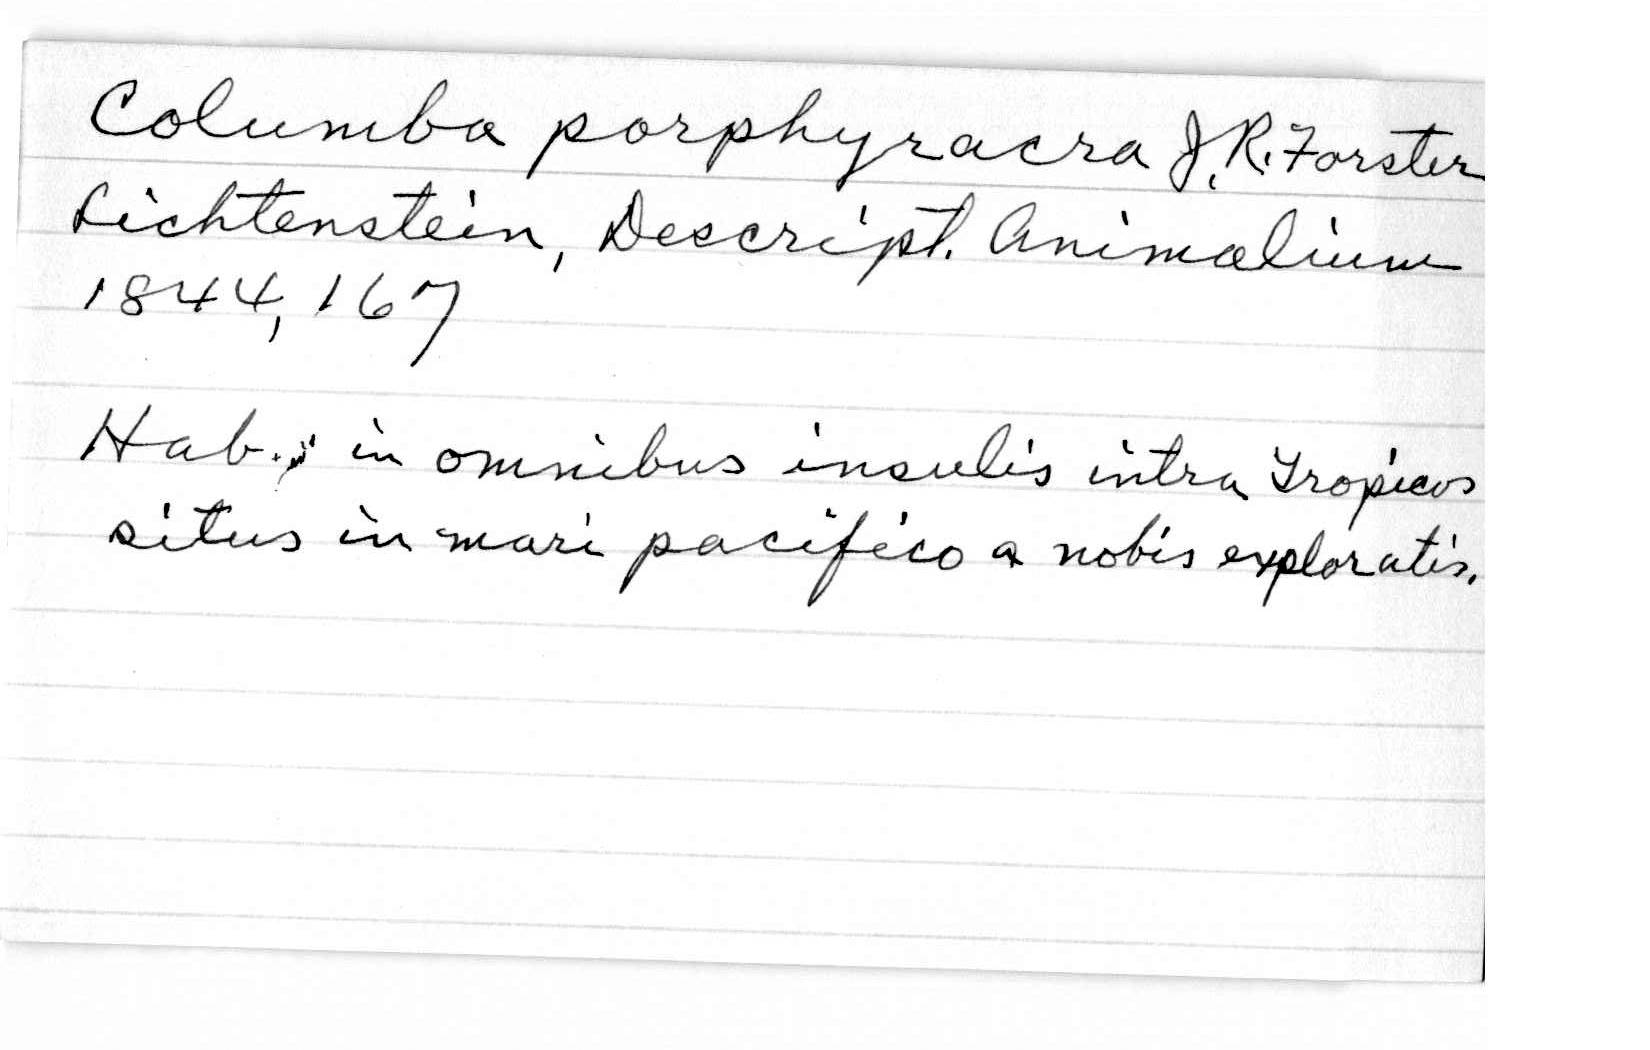 Columba porphyracra J.R. Forster
Lichtenstein, Descript. Animalium
1844, 167
Hab.; in omnibus insulis intra Tropicos
situs in mari pacifico a nobis exploratis.